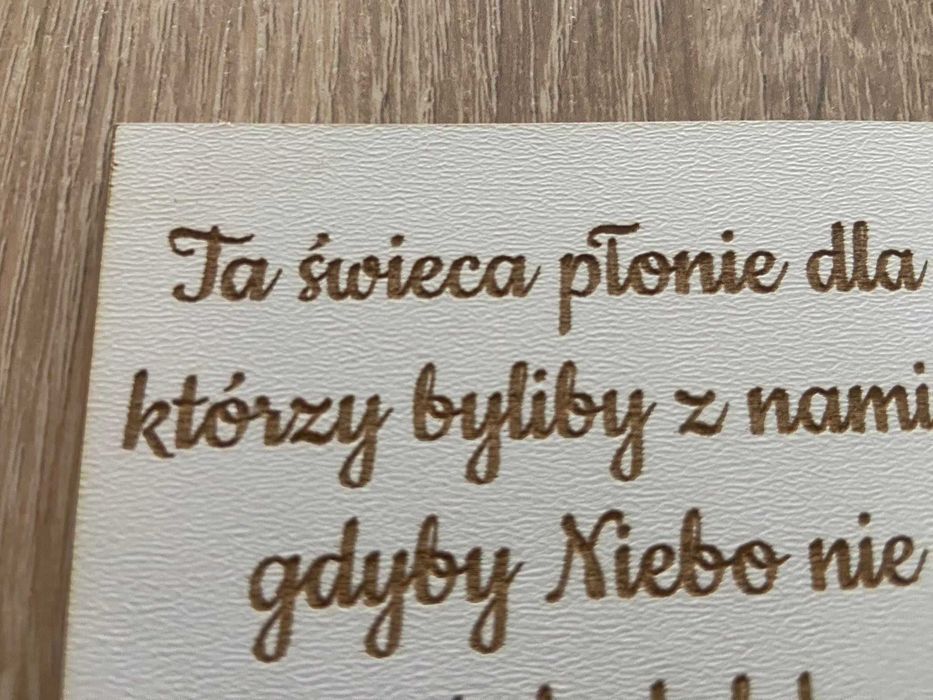 Ta świeca płonie dla
którzy byliby z nami
gdyby Niebo nie